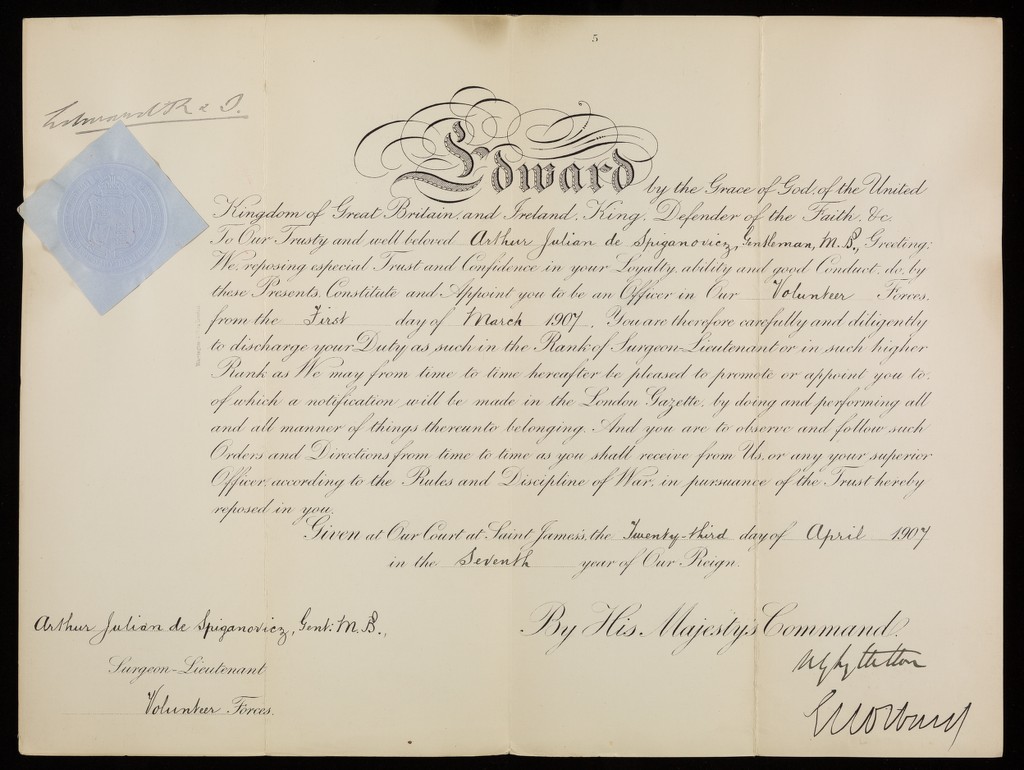 5
Edward R & I.
Edward by the Grace of God, of the United
Kingdom of Great Britain, and Ireland, King, Defender of the Faith, &c.
To Our Trusty and well beloved Arthur Julian de Spiganovicz, Gentleman, M.B., Greeting;
We, reposing especial Trust and Confidence in your Loyalty, ability and good Conduct, do, by
these Presents, Constitute and Appoint you to be an Officer in Our Volunteer Forces,
from the First day of March 1907. You are therefore carefully and diligently
to discharge your Duty as such in the Rank of Surgeon-Lieutenant or in such higher
Rank as We may from time to time hereafter be pleased to promote or appoint you to,
of which a notification will be made in the London Gazette, by doing and performing all
and all manner of things thereunto belonging. And you are to observe and follow such
Orders and Directions from time to time as you shall receive from Us, or any your superior
Officer, according to the Rules and Discipline of War, in pursuance of the Trust hereby
reposed in you.
Given at Our Court at Saint James's, the Twenty-third day of April 1907
in the Seventh year of Our Reign.
By His Majesty's Command.
Arthur Julian de Spiganovicz, Gent: M.B.,
Surgeon-Lieutenant
Volunteer Forces.